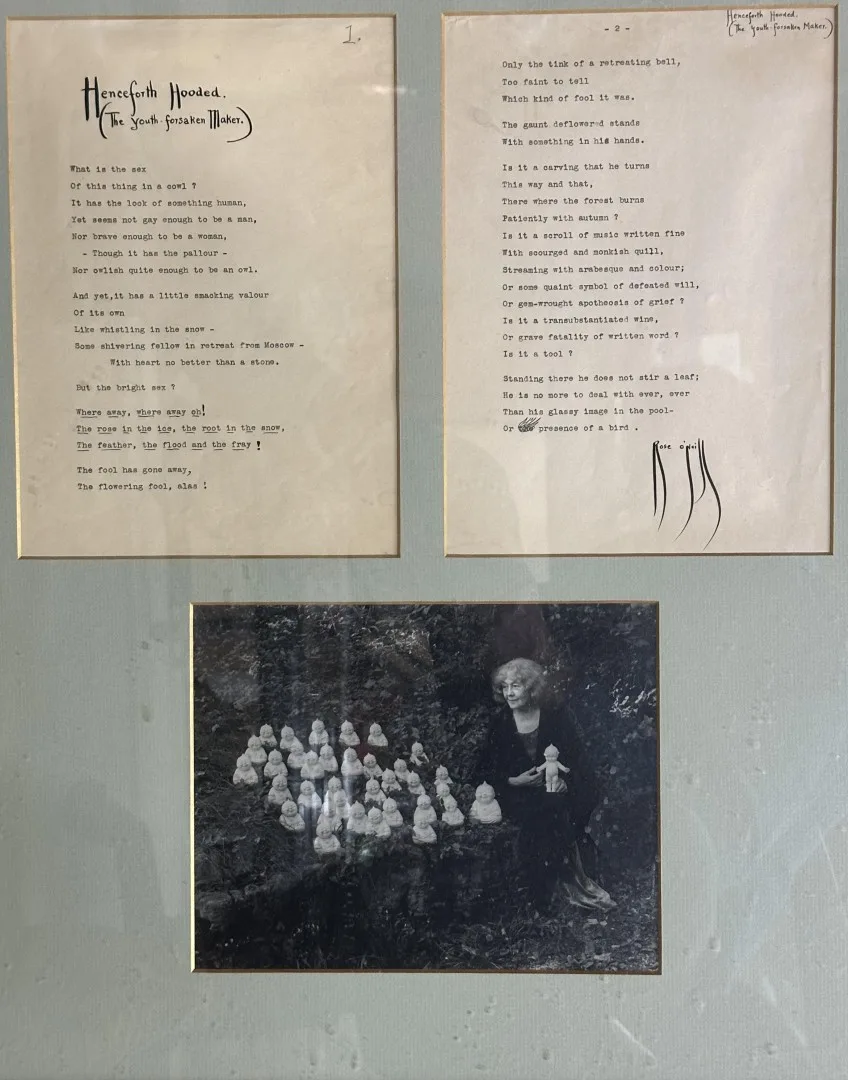 1.
Henceforth Hooded.
(The youth-forsaken Maker.)
What is the sex
Of this thing in a cowl ?
It has the look of something human,
Yet seems not gay enough to be a man,
Nor brave enough to be a woman,
- Though it has the pallour -
Nor owlish quite enough to be an owl.
And yet,it has a little smacking valour
Of its own
Like whistling in the snow -
Some shivering fellow in retreat from Moscow -
With heart no better than a stone.
But the bright sex ?
Where away, where away oh!
The rose in the ice, the root in the snow,
The feather, the flood and the fray !
The fool has gone away,
The flowering fool, alas !
- 2 -
Henceforth Hooded.
(The youth-forsaken Maker.)
Only the tink of a retreating bell,
Too faint to tell
Which kind of fool it was.
The gaunt deflowered stands
With something in his hands.
Is it a carving that he turns
This way and that,
There where the forest burns
Patiently with autumn ?
Is it a scroll of music written fine
With scourged and monkish quill,
Streaming with arabesque and colour;
Or some quaint symbol of defeated will,
Or gem-wrought apotheosis of grief ?
Is it a transubstantiated wine,
Or grave fatality of written word ?
Is it a tool ?
Standing there he does not stir a leaf;
He is no more to deal with ever, ever
Than his glassy image in the pool-
Or presence of a bird .
Rose O'Neill